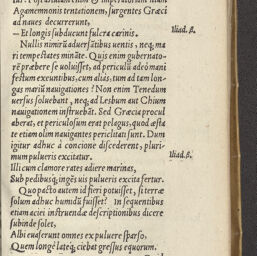 Agamemnonis tentationem, surgentes Græci
ad naues decurrerunt,
— Et longis subducunt fulcra carinis.
Iliad. β.
Nullis nimirũ aduersãtibus uentis, neq; ma
ri tempestates minãte. Quis enim gubernato-
rẽ præbere se uoluisset, ad periculũ adeò mani
festum exeuntibus, cum aliàs, tum ad tam lon-
gas mariũ nauigationes? Non enim Tenedum
uersus soluebant, neq; ad Lesbum aut Chium
nauigationem instruebãt. Sed Græcia procul
aberat, et periculosum erat pelagus, quod æsta
te etiam olim nauigantes periclitati sunt. Dum
igitur adhuc à concione discederent, pluri-
mum pulueris excitatur.
Iliad. β.
Illi cum clamore rates adiere marinas,
Sub pedibusq; ingẽs uis pulueris excita fertur.
Quo pacto autem id fieri potuisset, si terræ
solum adhuc humidũ fuisset? In sequentibus
etiam aciei instruendæ descriptionibus dicere
subinde solet,
Albi euaserunt omnes ex puluere sparso.
Quem longè lateq; ciebat gressus equorum.